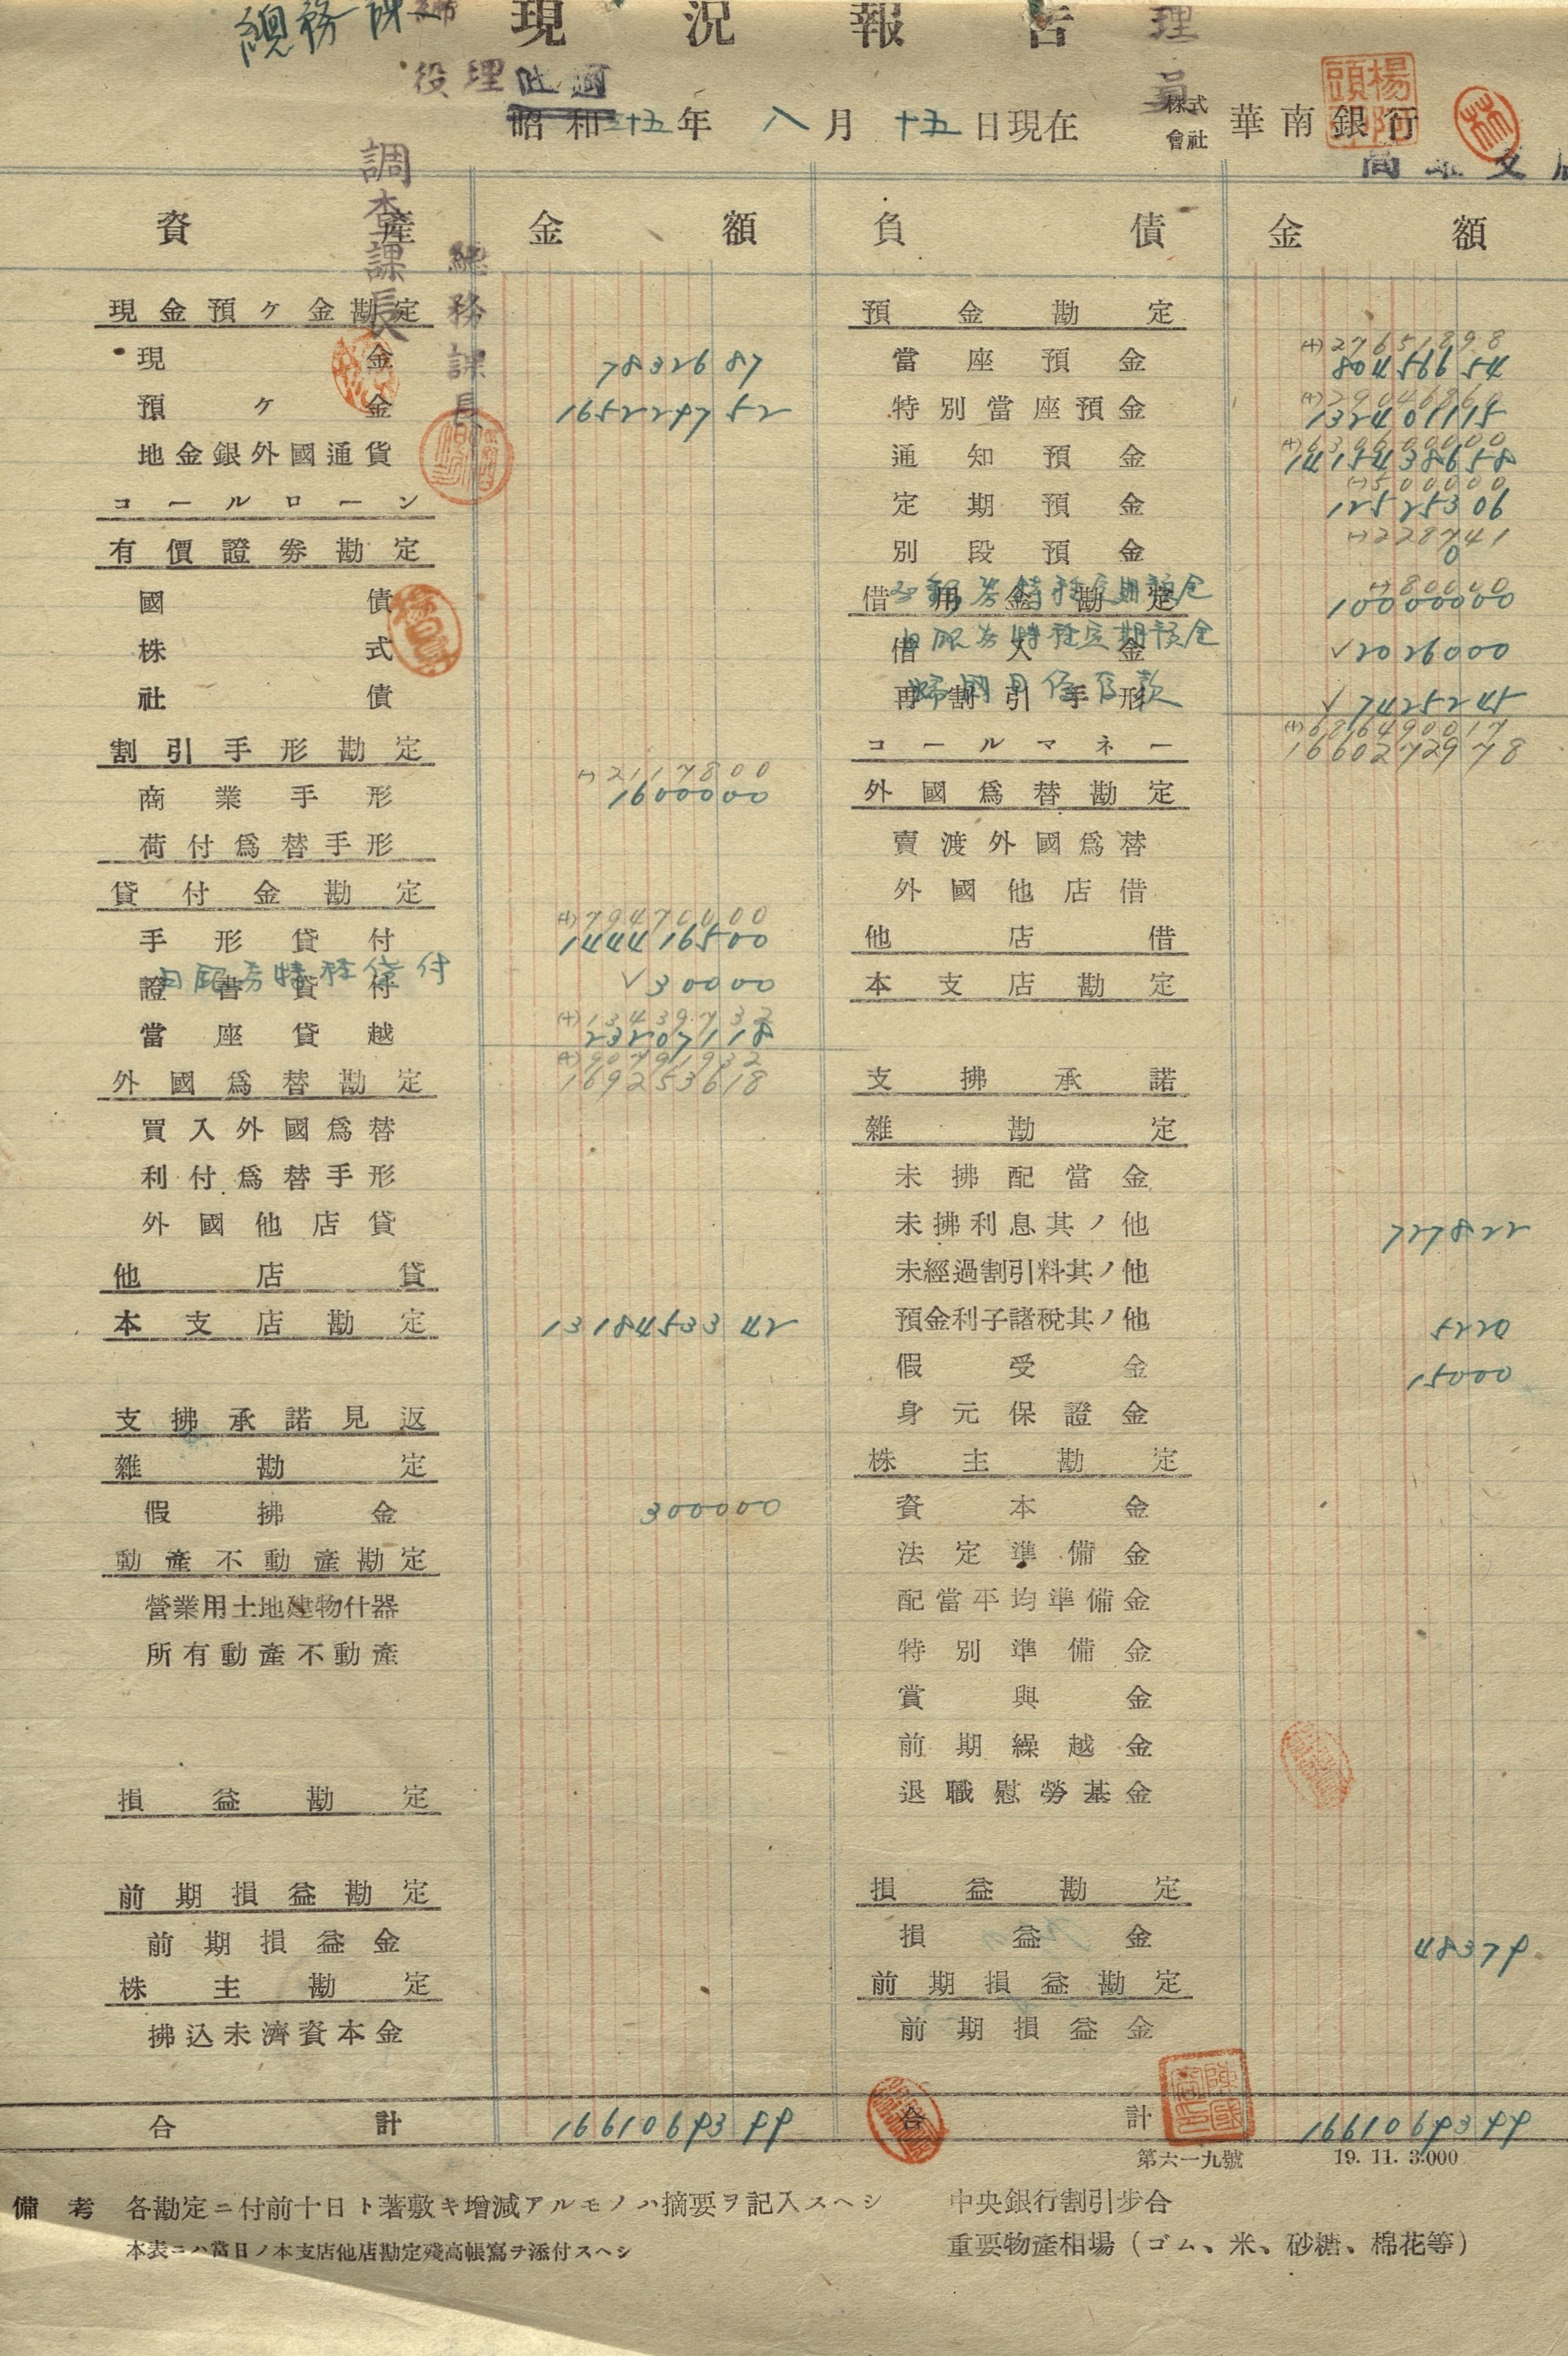 總務
現況報告
理
役理
昭和三十五年 八月十五日現在
株式會社 華南銀行
調査課長
總務課長
資產 金額 負債 金額
現金預ケ金勘定 預金勘定
(+)27651898
現金 7832687 當座預金 80456654
預ケ金 165229752 特別當座預金 132401115
(+)639600000
地金銀外國通貨 通知預金 1415438658
(-)500000
コールローン 定期預金 12525306
(-)228741
有價證券勘定 別段預金 0
(-)80000
國債 借用金勘定 10000000
株式 借入金 ✓2026000
社債 再割引手形 ✓7425245
(+)616490017
割引手形勘定 コールマネー 1660272978
(-)2117800
商業手形 1600000 外國爲替勘定
荷付爲替手形 賣渡外國爲替
貸付金勘定 外國他店借
(+)79470000
手形貸付 144416500 他店借
日銀券特種貸付
證書貸付 ✓30000 本支店勘定
(+)13439732
當座貸越 23207118
(+)90791932
外國爲替勘定 169253618 支拂承諾
買入外國爲替 雜勘定
利付爲替手形 未拂配當金
外國他店貸 未拂利息其ノ他 727822
他店貸 未經過割引料其ノ他
本支店勘定 1318453342 預金利子諸稅其ノ他 5220
假受金 15000
支拂承諾見返 身元保證金
雜勘定 株主勘定
假拂金 300000 資本金
動產不動產勘定 法定準備金
營業用土地建物什器 配當平均準備金
所有動產不動產 特別準備金
賞與金
前期繰越金
損益勘定 退職慰勞基金
前期損益勘定 損益勘定
前期損益金 損益金 48379
株主勘定 前期損益勘定
拂込未濟資本金 前期損益金
合計 1661069399 合計 1661069399
第六一九號 19. 11. 3.000
備考 各勘定ニ付前十日ト著敷キ增減アルモノハ摘要ヲ記入スヘシ 中央銀行割引步合
本表ニハ當日ノ本支店他店勘定殘高帳寫ヲ添付スヘシ 重要物產相場(ゴム、米、砂糖、棉花等)